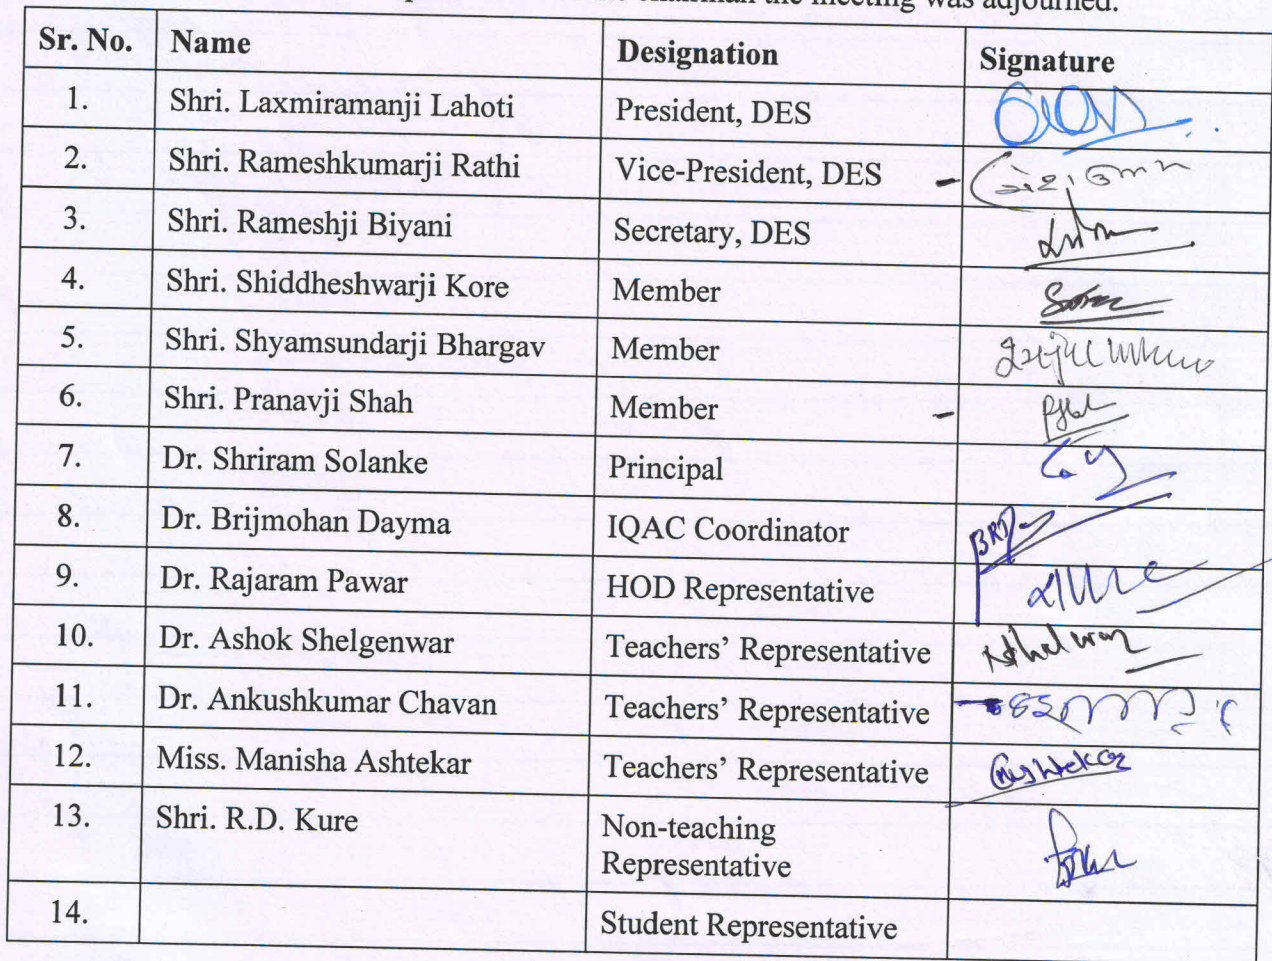 chairman the meeting was adjourned.
Sr. No. Name Designation Signature
1. Shri. Laxmiramanji Lahoti President, DES
2. Shri. Rameshkumarji Rathi Vice-President, DES
3. Shri. Rameshji Biyani Secretary, DES
4. Shri. Shiddheshwarji Kore Member
5. Shri. Shyamsundarji Bhargav Member
6. Shri. Pranavji Shah Member
7. Dr. Shriram Solanke Principal
8. Dr. Brijmohan Dayma IQAC Coordinator
9. Dr. Rajaram Pawar HOD Representative
10. Dr. Ashok Shelgenwar Teachers’ Representative
11. Dr. Ankushkumar Chavan Teachers’ Representative
12. Miss. Manisha Ashtekar Teachers’ Representative
13. Shri. R.D. Kure Non-teaching
Representative
14. Student Representative